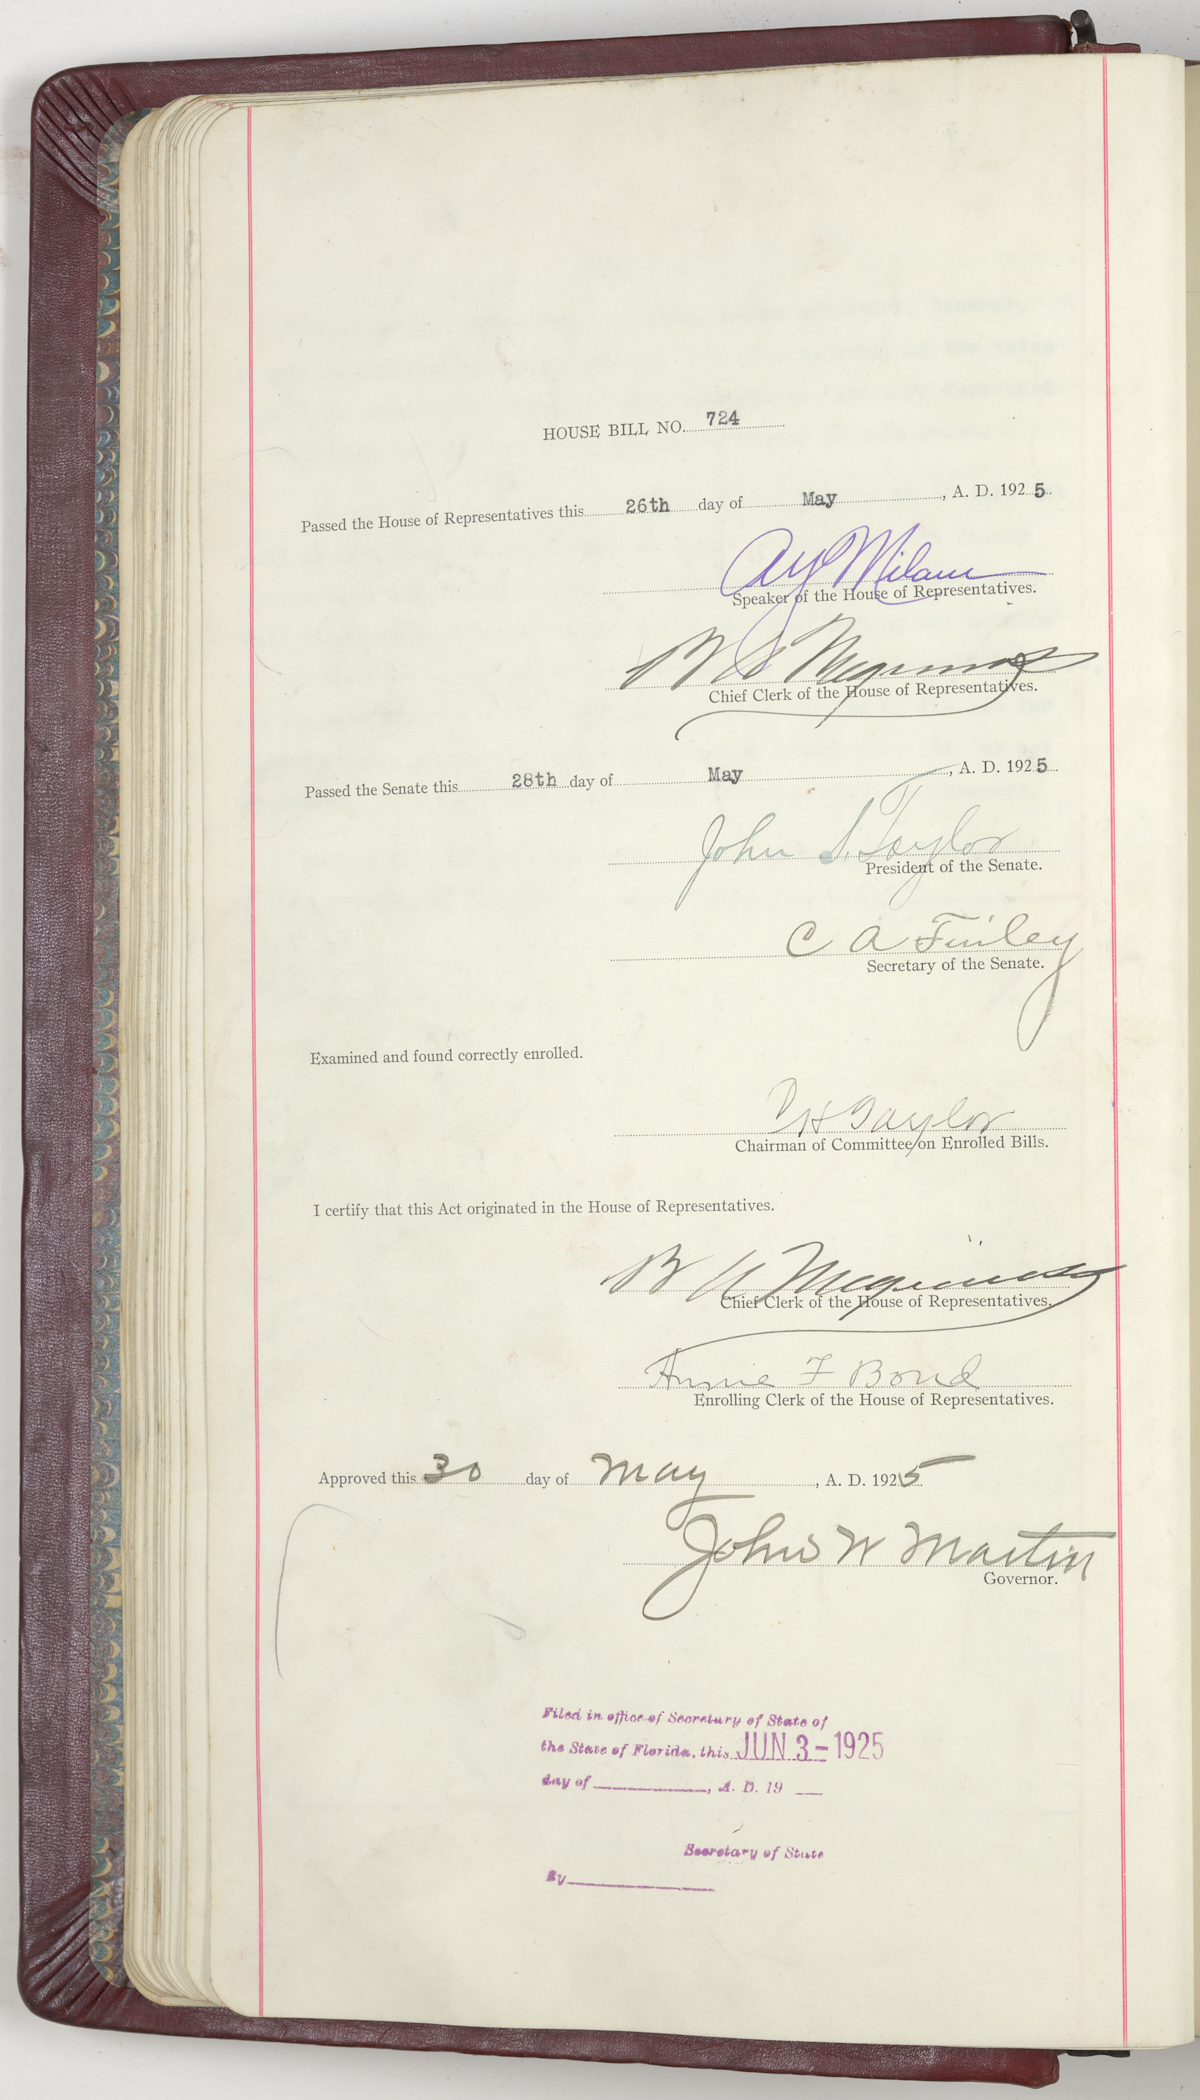 HOUSE BILL NO. 724
Passed the House of Representatives this 26th day of May, A. D. 1925.
A Y Milam
Speaker of the House of Representatives.
B A Meginniss
Chief Clerk of the House of Representatives.
Passed the Senate this 28th day of May, A. D. 1925
John S. Taylor
President of the Senate.
C A Finley
Secretary of the Senate.
Examined and found correctly enrolled.
H Taylor
Chairman of Committee on Enrolled Bills.
I certify that this Act originated in the House of Representatives.
B A Meginniss
Chief Clerk of the House of Representatives.
Annie F Bond
Enrolling Clerk of the House of Representatives.
Approved this 30 day of May, A. D. 1925
John W Martin
Governor.
Filed in office of Secretary of State of
the State of Florida, this JUN 3 - 1925
day of , A. D. 19
Secretary of State
By